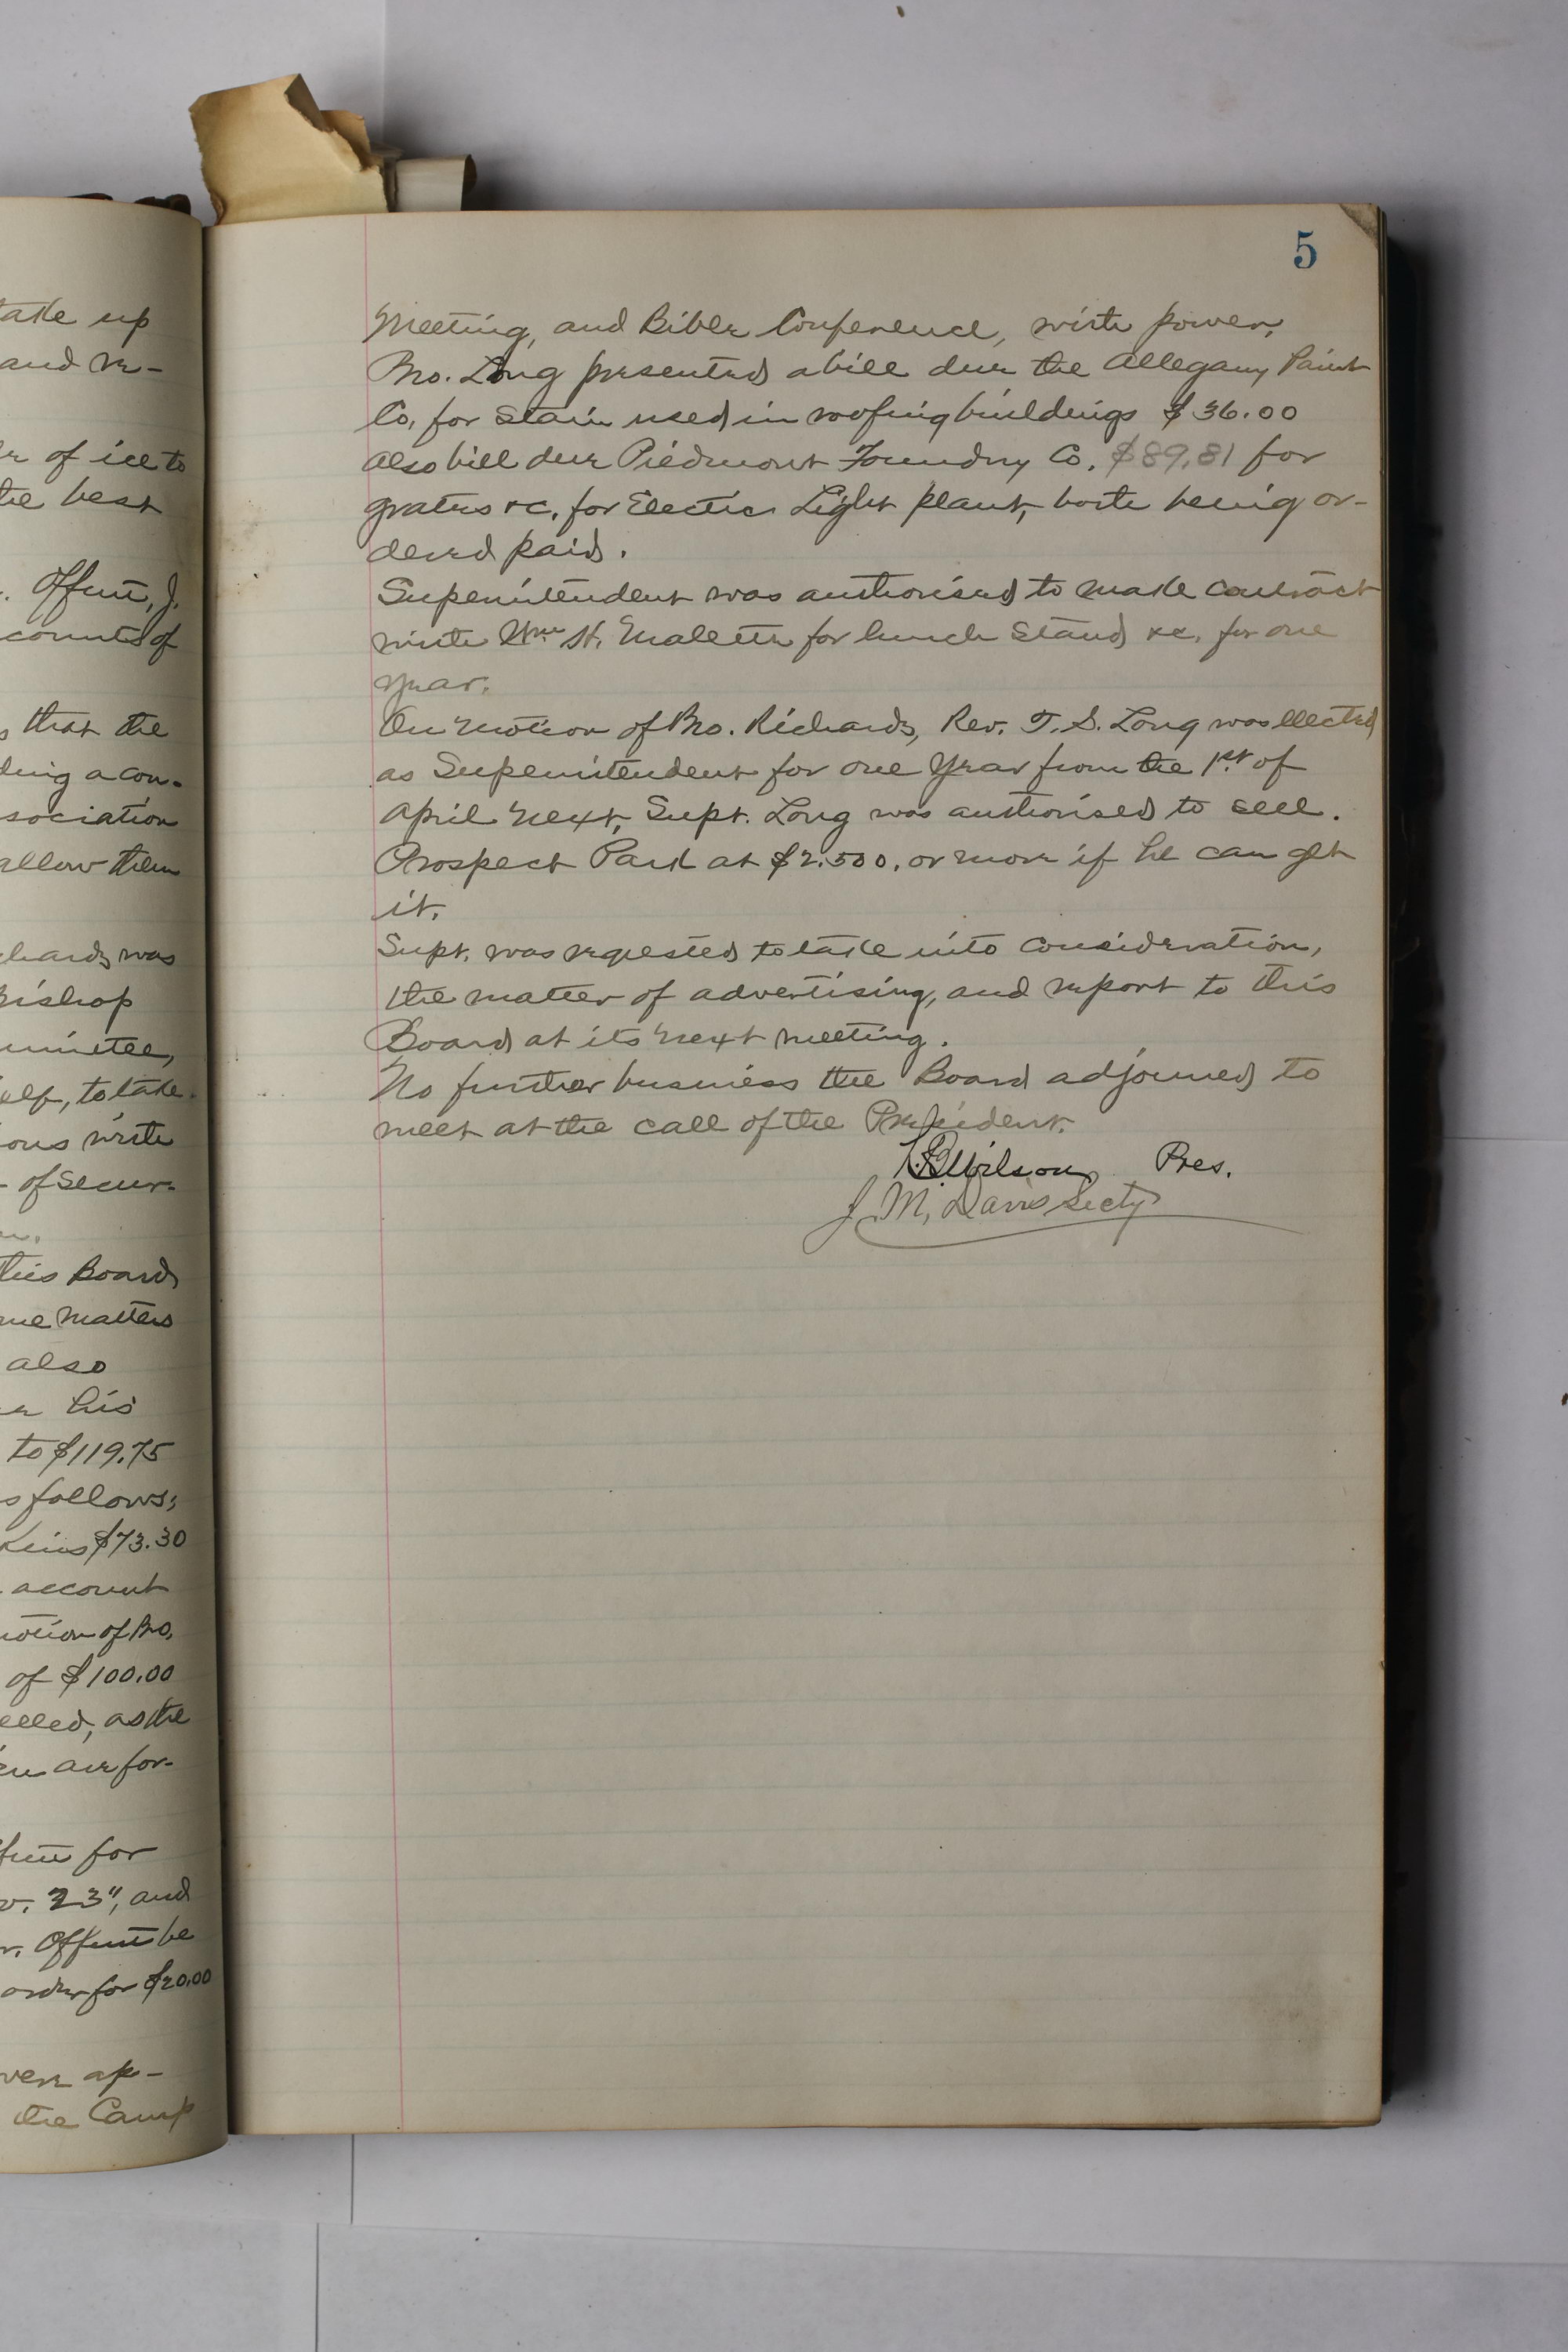 take up
and re-
of ice to
the best
Offutt, J.
counts of
that the
ding a con-
sociation
allow them
hards was
Bishop
mmittee,
self, to take
ous write
of secur-
this Board
me matters
also
his
to $119.75
s follows;
kins $73.30
account
motion of Bro.
of $100.00
celled, as the
for-
for
23", and
Offutt be
order for $20.00
ap-
the Camp
5
Meeting, and Bible Conference, with power.
Bro. Long presented a bill due the Allegany Paint
Co, for Stain used in roofing buildings $36.00
also bill due Piedmont Foundry Co. $89.81 for
grates &c. for Electric Light plant, both being or-
dered paid.
Superintendent was authorised to make contract
with Wm H. for lunch Stand &c. for one
year.
On motion of Bro. Richards, Rev. T. S. Long was elected
as Superintendent for one Year from the 1st of
April next, Supt. Long was authorised to sell.
Prospect Park at $2.500. or more if he can get
it.
Supt. was requested to take into consideration,
the matter of advertising, and report to this
Board at its next meeting.
No further business the Board adjourned to
meet at the call of the President.
Wilson Pres.
J. M. Davis Secty